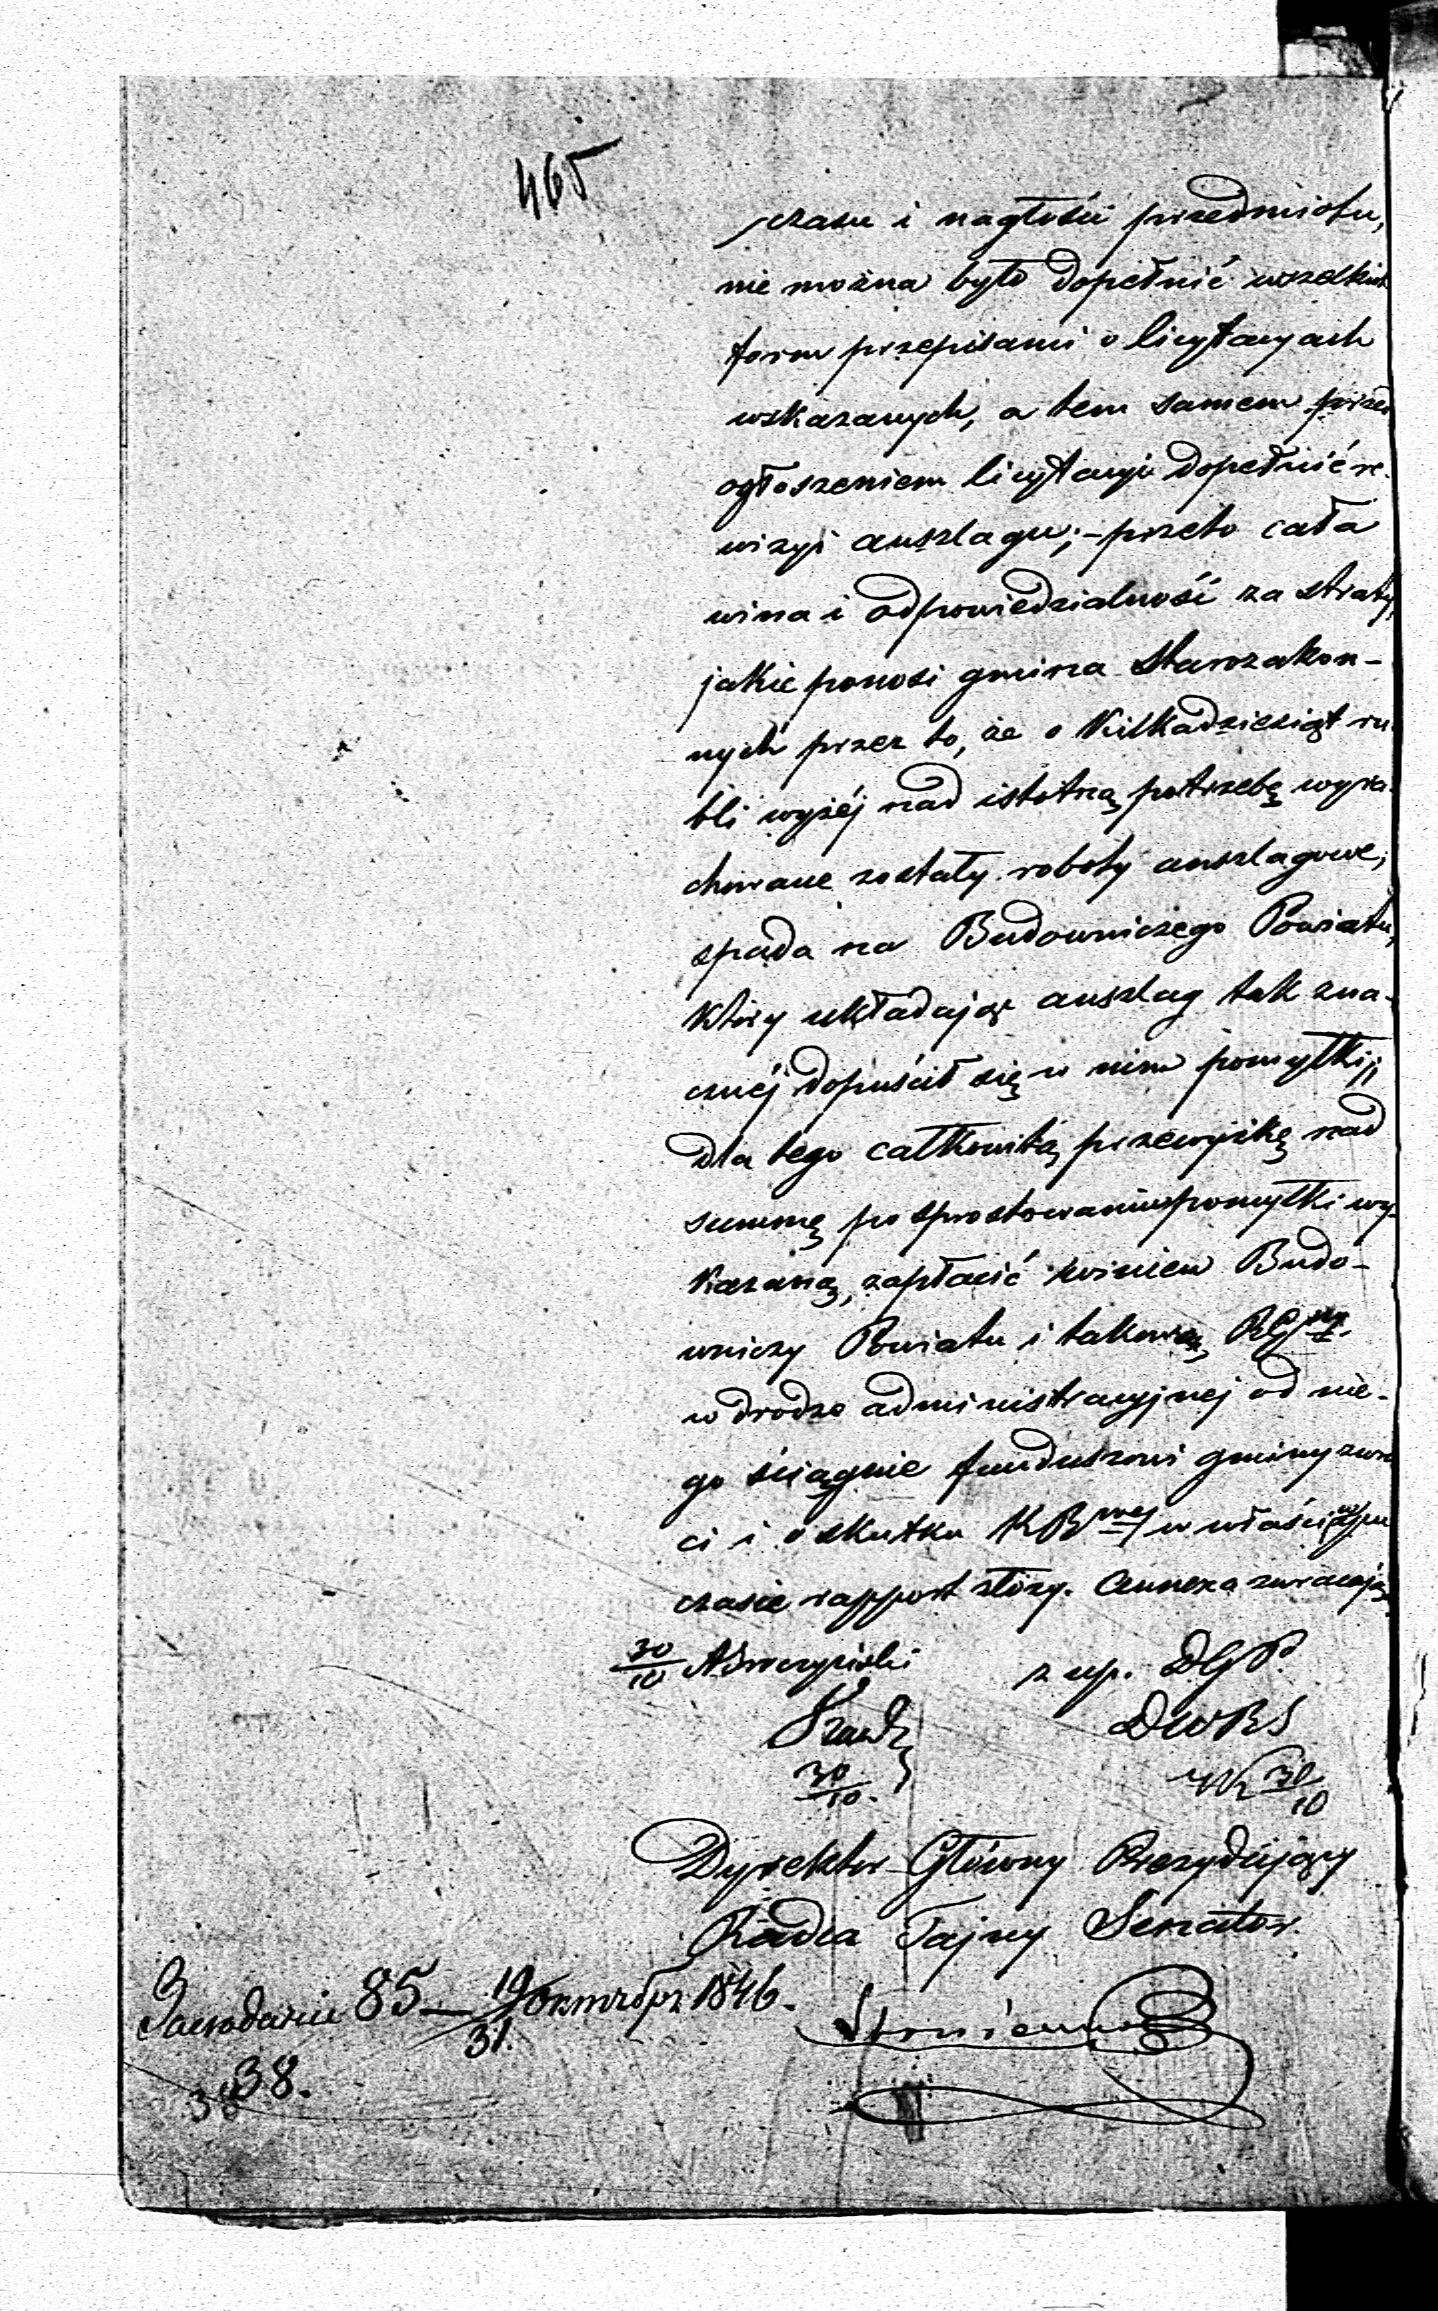 465
czasu i nagłości przedmiotu,
nie można było dopełnić wszelkich
form przepisami o licytacyach
wskazanych, a tem samem przed
ogłoszeniem licytacyi dopełnić re-
wizyi anszlagu; - przeto cała
wina i odpowiedzialność za straty,
jakie ponosi gmina Starozakon-
nych przez to, że o kilkadziesiąt ru-
bli wyżéj nad istotną potrzebę wyra-
chowane zostały roboty anszlagowe,
spada na Budowniczego Powiatu,
który układając anszlag tak zna-
cznéj dopuścił się w nim pomyłki;
dla tego całkowitą przewyżkę nad
summę po sprostowaniu pomyłki wy-
kazaną, zapłacić winien Budo-
wniczy Powiatu i takową RGny
w drodze administracyjnej od nie-
go ściągnie funduszowi gminy zwró-
ci i o skutku KRwej w właściwym
czasie rapport złoży. Annexa zwracają
30/10
z up. DGP.
DWRS
30/10
30/10
Dyrektor Główny Prezydujący
Radca Tajny Senator
85 - 19/31. 1846.
38.